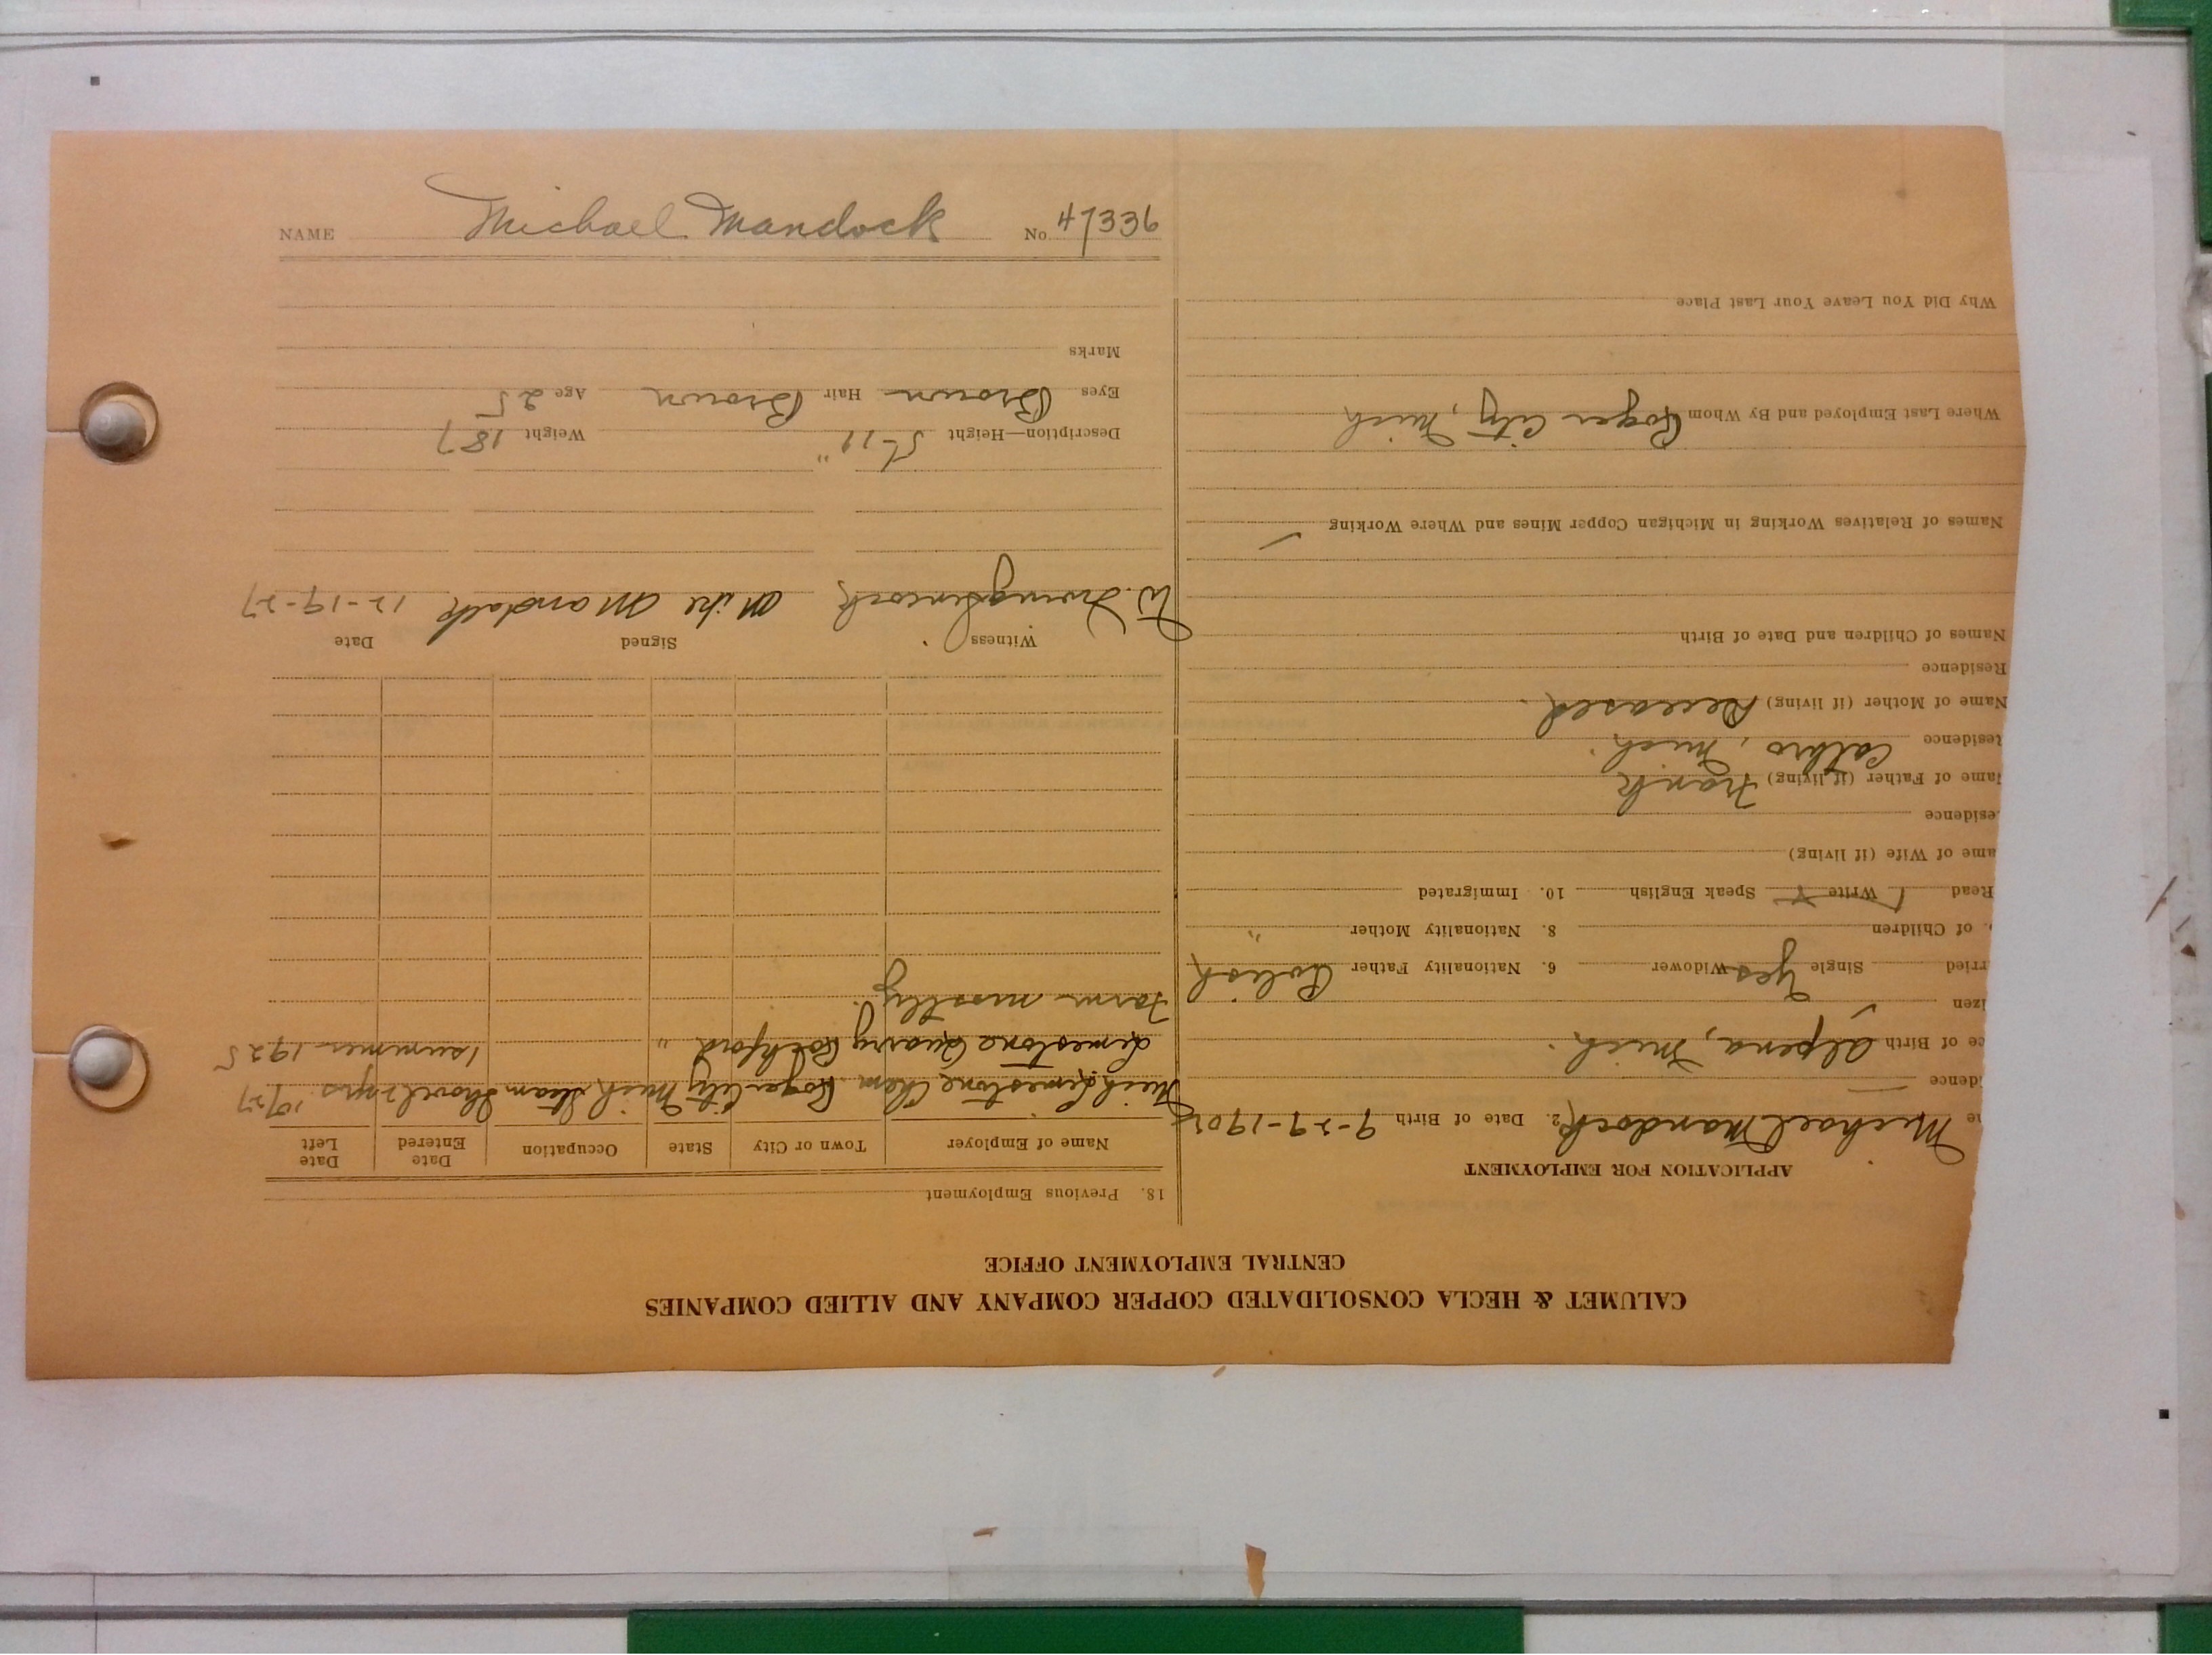 NAME Michael Mandock No. 47336
CALUMET & HECLA CONSOLIDATED COPPER COMPANY AND ALLIED COMPANIES
CENTRAL EMPLOYMENT OFFICE
APPLICATION FOR EMPLOYMENT
me Michael Mandock 2. Date of Birth 9-29-190
idence
ce of Birth Alpena, Mich.
izen
rried Single Yes Widower 6. Nationality Father Polish
. of Children 8. Nationality Mother "
Read Write Speak English 10. Immigrated
ame of Wife (if living)
esidence
Name of Father (if living) Frank
Residence Cathro, Mich.
Name of Mother (if living) Deceased.
Residence
Names of Children and Date of Birth
Names of Relatives Working in Michigan Copper Mines and Where Working
Where Last Employed and By Whom Roger City, Mich
Why Did You Leave Your Last Place
18. Previous Employment
Name of Employer Town or City State Occupation Date Entered Date Left
Mich Limestone Chem. Roger City Mich Steam Shovel 2 yrs 1927
Limestone Quarry Rockford " 1 summer 1925
Farm mostly.
Witness Signed Date
W. Mike Mandock 12-19-27
Description—Height 5-11" Weight 187
Eyes Brown Hair Brown Age 25
Marks